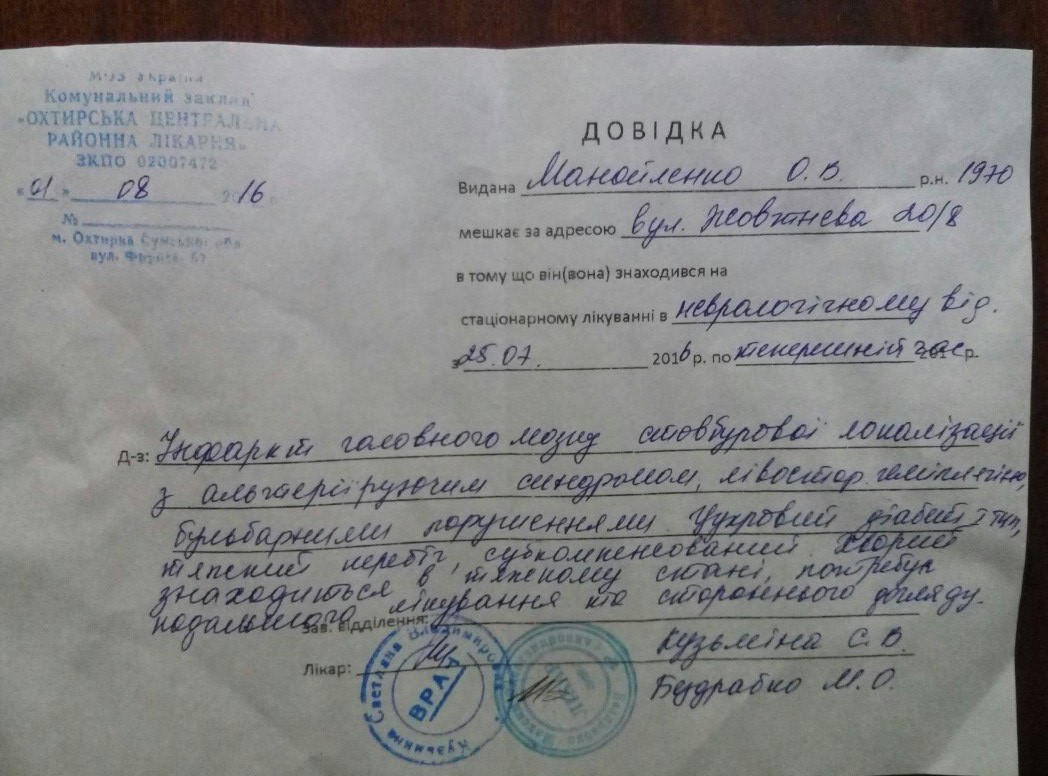 МОЗ України
Комунальний заклад
«ОХТИРСЬКА ЦЕНТРАЛЬНА
РАЙОННА ЛІКАРНЯ»
ЗКПО 02007472
«01» 08 2016 р.
№
м. Охтирка Сумської обл
вул. Фрунзе, 67
ДОВІДКА
Видана Манойленко О.В. р.н. 1970
мешкає за адресою вул. Жовтнева 20/8
в тому що він(вона) знаходився на
стаціонарному лікуванні в неврологічному від.
з 25.07. 2016 р. по теперешній час р.
Д-з: Інфаркт головного мозку стовбурової локалізації
з альтеріруючим синдромом, лівостор. геміплегією,
бульбарними порушеннями. Цукровий діабет I тип,
тяжкий перебіг, субкомпенсований. Хворий
знаходиться в тяжкому стані, потребує
подальшого лікування та стороннього догляду.
Зав. відділення:
Кузьміна С.В.
Лікар:
Будрабко М.О.
Кузьмина Светлана Владимировна
ВРАЧ
ЛІКАР